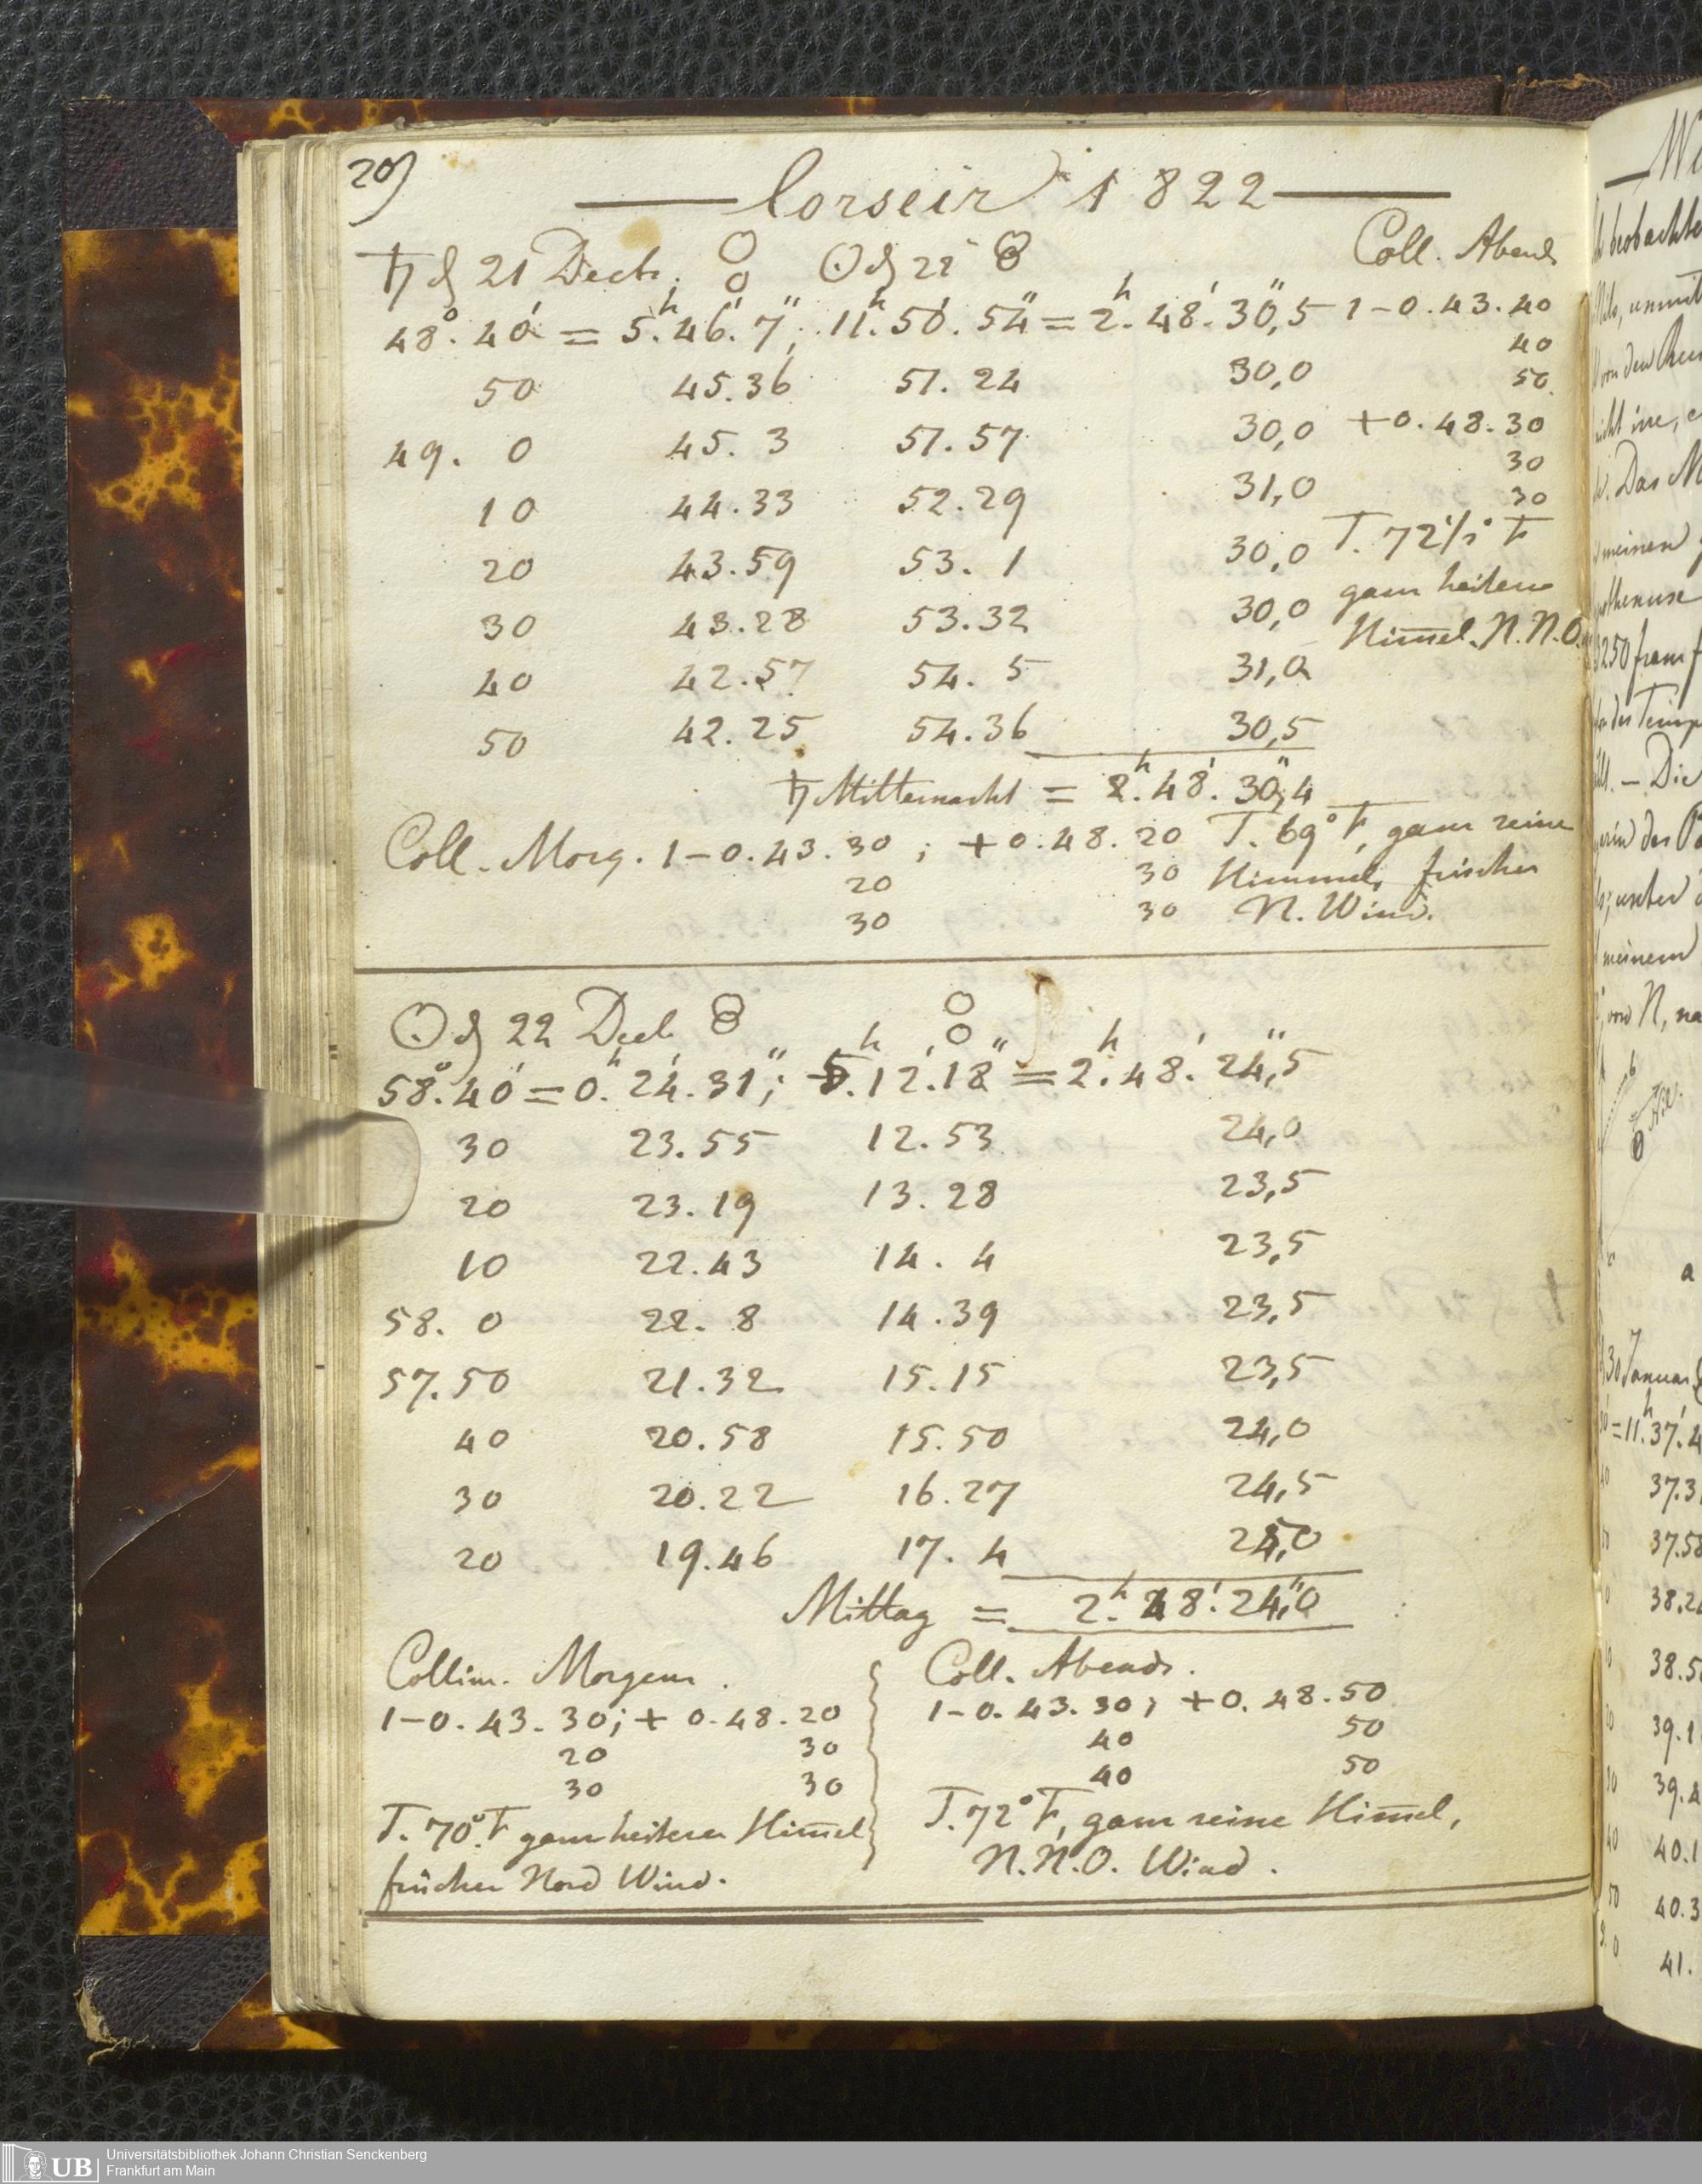 20)
Corseir 1822
♄ d 21 Decb. ☉ d 22 Coll. Abend
48°.40' = 5h.46'.7"; 11h.50'.54" = 2h.48'.30",5 1-0.43.40
40
50 45.36 51.24 30,0 50
49. 0 45. 3 51.57 30,0 +0.48.30
30
10 44.33 52.29 31,0 30
20 43.59 53. 1 30,0 T. 72 1/2° F
30 43.28 53.32 30,0 ganz heiterer
Him̅el. N.N.O.
40 42.57 54. 5 31,0
50 42.25 54.36 30,5
♄ Mitternacht = 2h.48'.30",4
Coll. Morg. 1-0.43.30; +0.48.20 T. 69° F, ganz reine
20 30 Himmel, frischer
30 30 N. Wind.
☉ d 22 Decb.
58°.40' = 0h.24'.31"; 5h.12'.18" = 2h.48'.24",5
30 23.55 12.53 24,0
20 23.19 13.28 23,5
10 22.43 14. 4 23,5
58. 0 22. 8 14.39 23,5
57.50 21.32 15.15 23,5
40 20.58 15.50 24,0
30 20.22 16.27 24,5
20 19.46 17. 4 25,0
Mittag = 2h.48'.24",0
Collim. Morgens.
1-0.43.30; +0.48.20
20 30
30 30
T. 70° F ganz heiterer Him̅el
frischer Nord Wind.
Coll. Abends.
1-0.43.30; +0.48.50
40 50
40 50
T. 72° F, ganz reine Him̅el,
N.N.O. Wind.
beobachte
Das
meinen
3250
des Temp
Die
unter
meinem
von N, na
Nil.
a
30 Januar
=11h.37'.4
37.3
37.58
38.2
38.5
39.1
39.
40.1
40.3
41.
UB Universitätsbibliothek Johann Christian Senckenberg
Frankfurt am Main